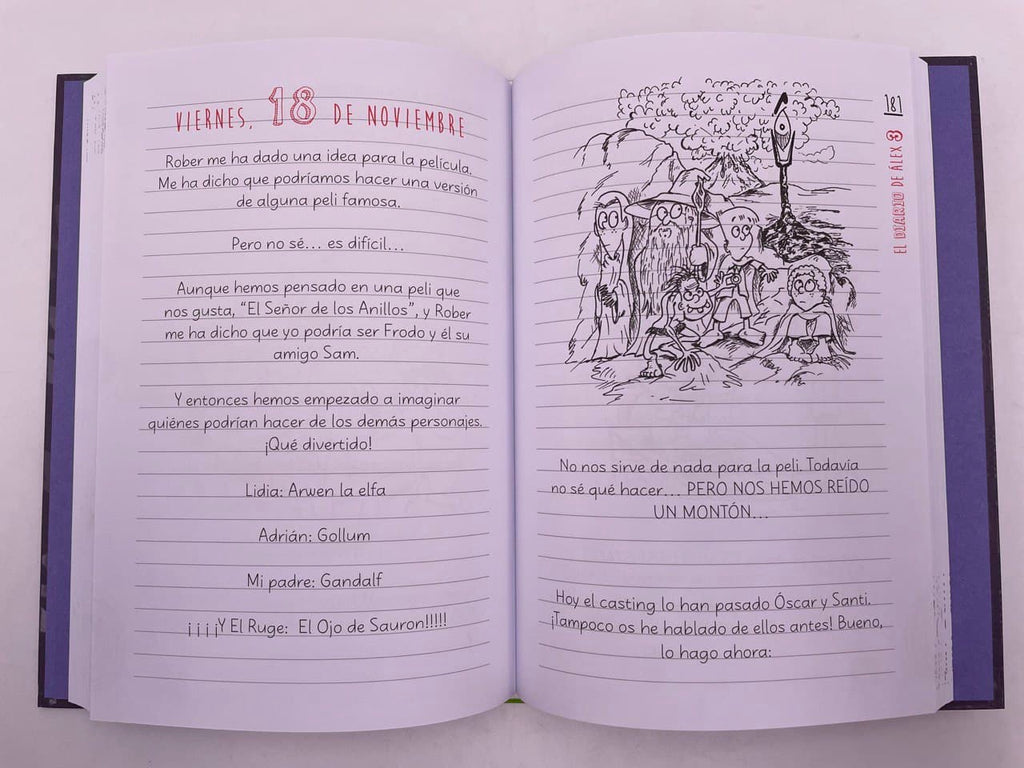 VIERNES, 18 DE NOVIEMBRE
Rober me ha dado una idea para la película.
Me ha dicho que podríamos hacer una versión
de alguna peli famosa.
Pero no sé... es difícil...
Aunque hemos pensado en una peli que
nos gusta, “El Señor de los Anillos”, y Rober
me ha dicho que yo podría ser Frodo y él su
amigo Sam.
Y entonces hemos empezado a imaginar
quiénes podrían hacer de los demás personajes.
¡Qué divertido!
Lidia: Arwen la elfa
Adrián: Gollum
Mi padre: Gandalf
¡¡¡¡Y El Ruge: El Ojo de Sauron!!!!!
181
EL DIARIO DE ÁLEX 3
No nos sirve de nada para la peli. Todavía
no sé qué hacer... PERO NOS HEMOS REÍDO
UN MONTÓN...
Hoy el casting lo han pasado Óscar y Santi.
¡Tampoco os he hablado de ellos antes! Bueno,
lo hago ahora: